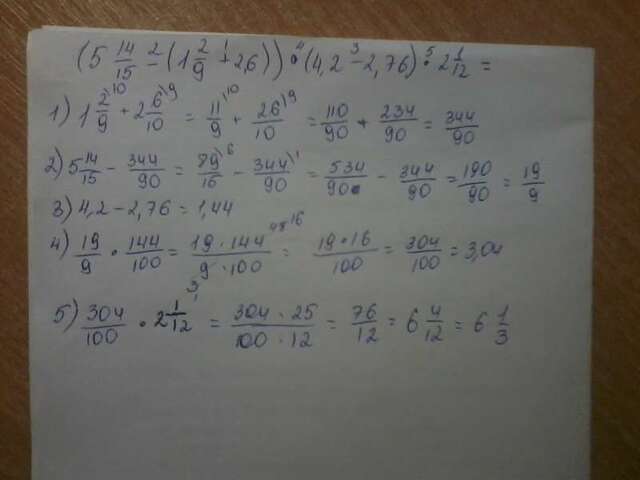 (5 14/15 - (1 2/9 + 2,6)) · (4,2 - 2,76) · 2 1/12 =
1) 1 2/9 + 2 6/10 = 11/9 + 26/10 = 110/90 + 234/90 = 344/90
2) 5 14/15 - 344/90 = 89/15 - 344/90 = 534/90 - 344/90 = 190/90 = 19/9
3) 4,2 - 2,76 = 1,44
4) 19/9 · 144/100 = 19·144/9·100 = 19·16/100 = 304/100 = 3,04
5) 304/100 · 2 1/12 = 304·25/100·12 = 76/12 = 6 4/12 = 6 1/3